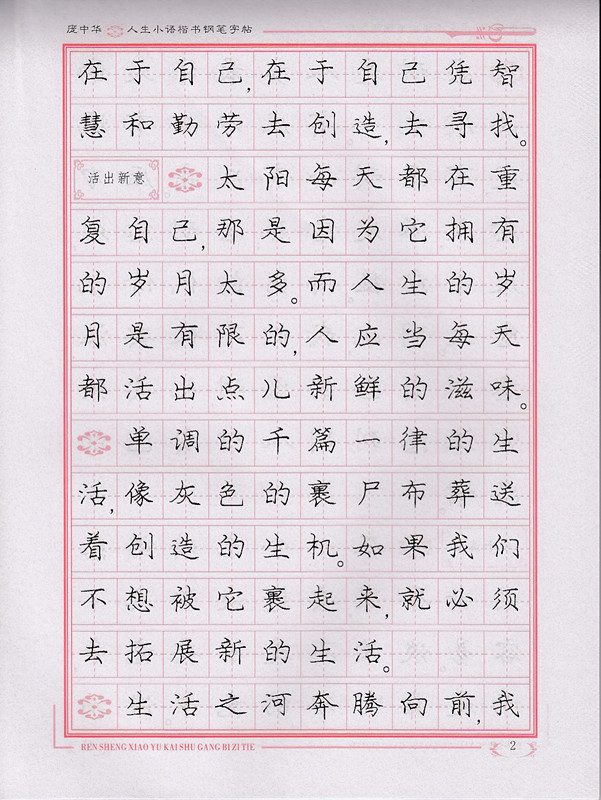 庞中华 人生小语楷书钢笔字帖
在于自己,在于自己凭智
慧和勤劳去创造,去寻找。
活出新意 太阳每天都在重
复自己,那是因为它拥有
的岁月太多。而人生的岁
月是有限的,人应当每天
都活出点儿新鲜的滋味。
单调的千篇一律的生
活,像灰色的裹尸布葬送
着创造的生机。如果我们
不想被它裹起来,就必须
去拓展新的生活。
生活之河奔腾向前,我
REN SHENG XIAO YU KAI SHU GANG BI ZI TIE
2